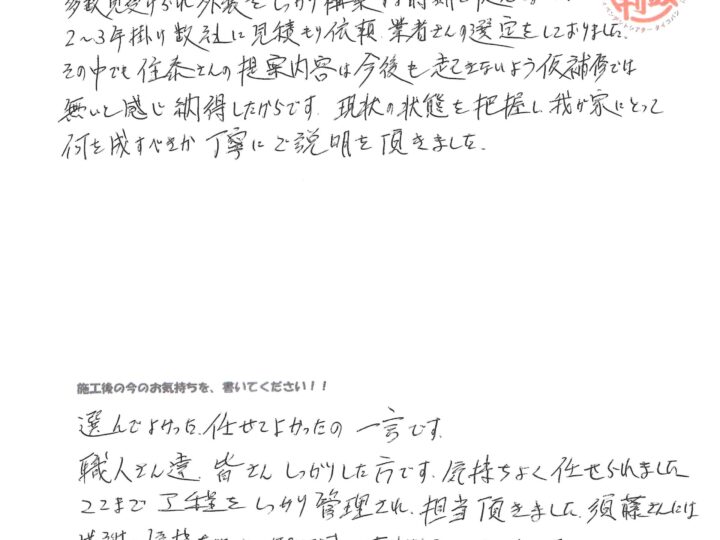 多数見受けられ外装をしっかり
2〜3年掛け数社に見積もり依頼、業者さんの選定をしておりました。
その中でも住泰さんの提案内容は今後も起きないよう仮補修では
無いと感じ納得したからです。現状の状態を把握し、我が家にとって
何を成すべきか丁寧にご説明を頂きました。
施工後の今のお気持ちを、書いてください！！
選んでよかった、任せてよかったの一言です。
職人さん達、皆さんしっかりした方です。気持ちよく任せられました
ここまで工程をしっかり管理され、担当頂きました、須藤さんには